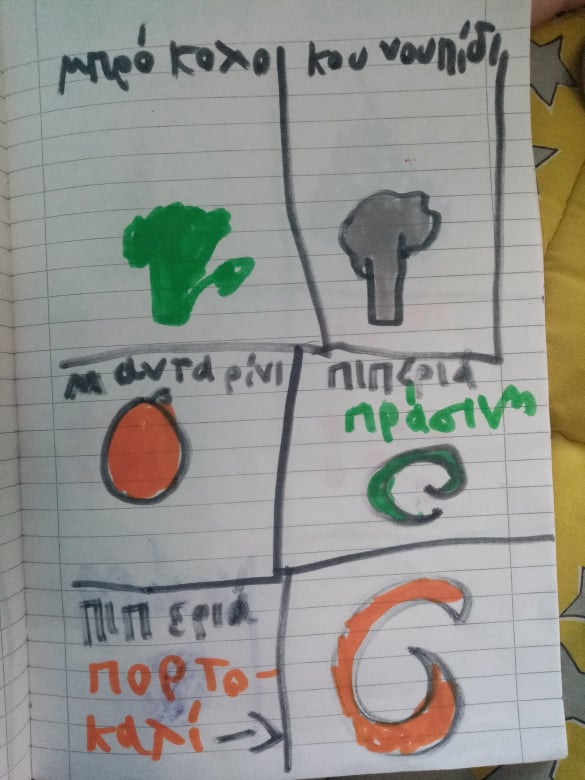 μπρό κολο
κου νουπίδι
μανταρίνι
πιπέριά
πράσινη
πιπ εριά
πορτο-
καλί